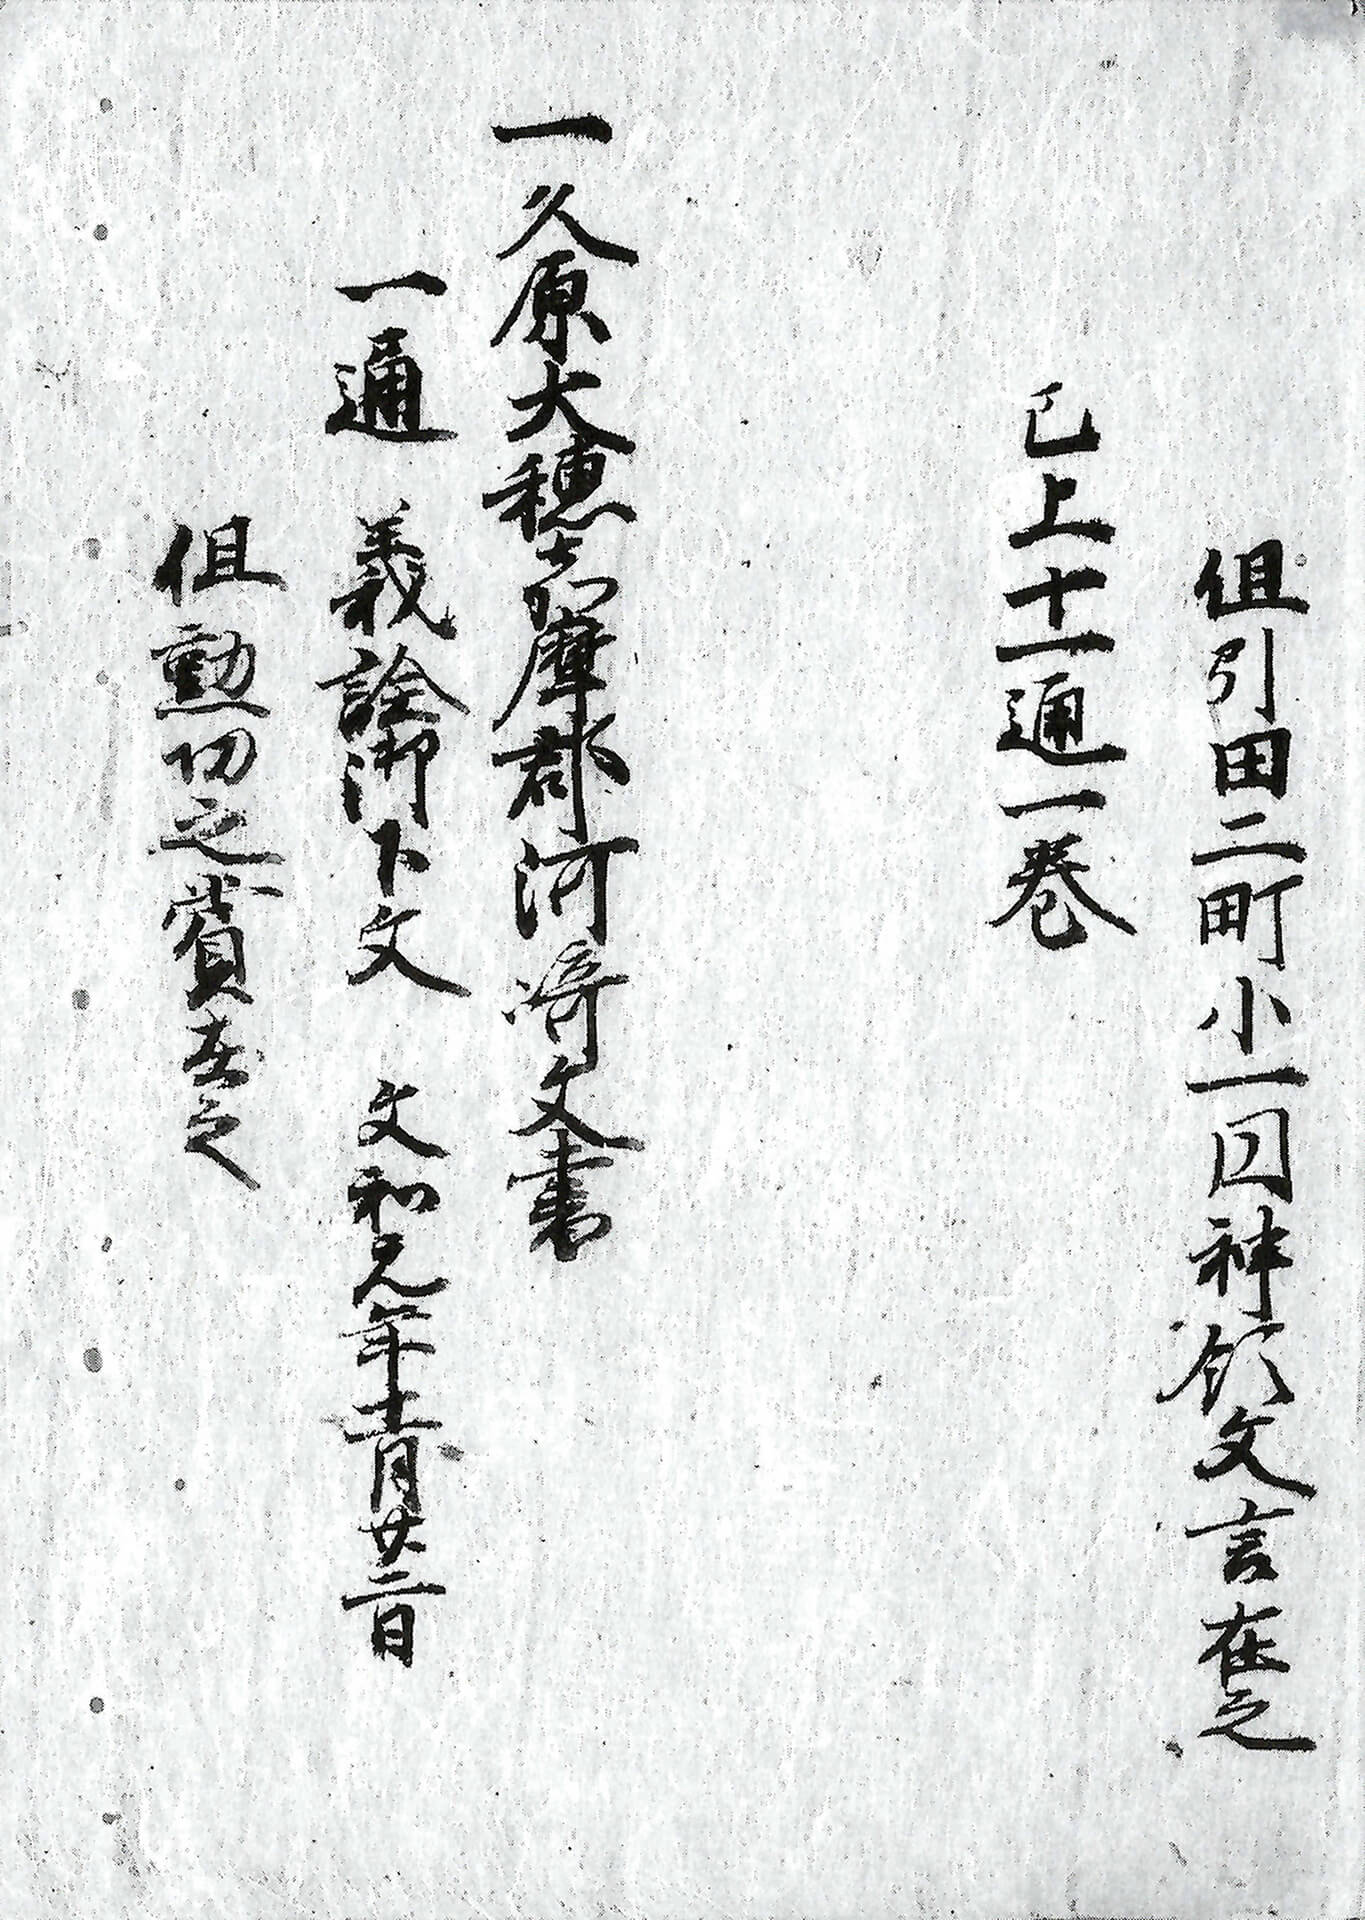 但引田二町小一図神領文言在之
已上十一通一巻
一久原大穂嘉摩郡河﨑文書
一通 義詮御下文 文和元年十一月廿二日
但勲功之賞在之